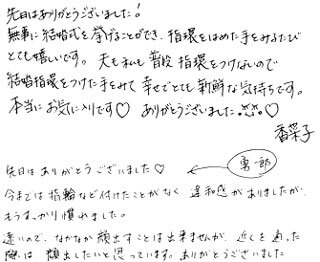 先日はありがとうございました!
無事に結婚式を挙げることができ、指環をはめた手をみるたび
とても嬉しいです。夫も私も普段指環をつけないので
結婚指環をつけた手をみて幸せでとても新鮮な気持ちです。
本当にお気に入りです♡ ありがとうございました
香菜子
先日はありがとうございました♡
勇一郎
今までは指輪など付けたことがなく 違和感がありましたが、
もうすっかり慣れました。
遠いので、なかなか顔出すことは出来ませんが、近くを通った
際は 顔出したいと思っています。ありがとうございました